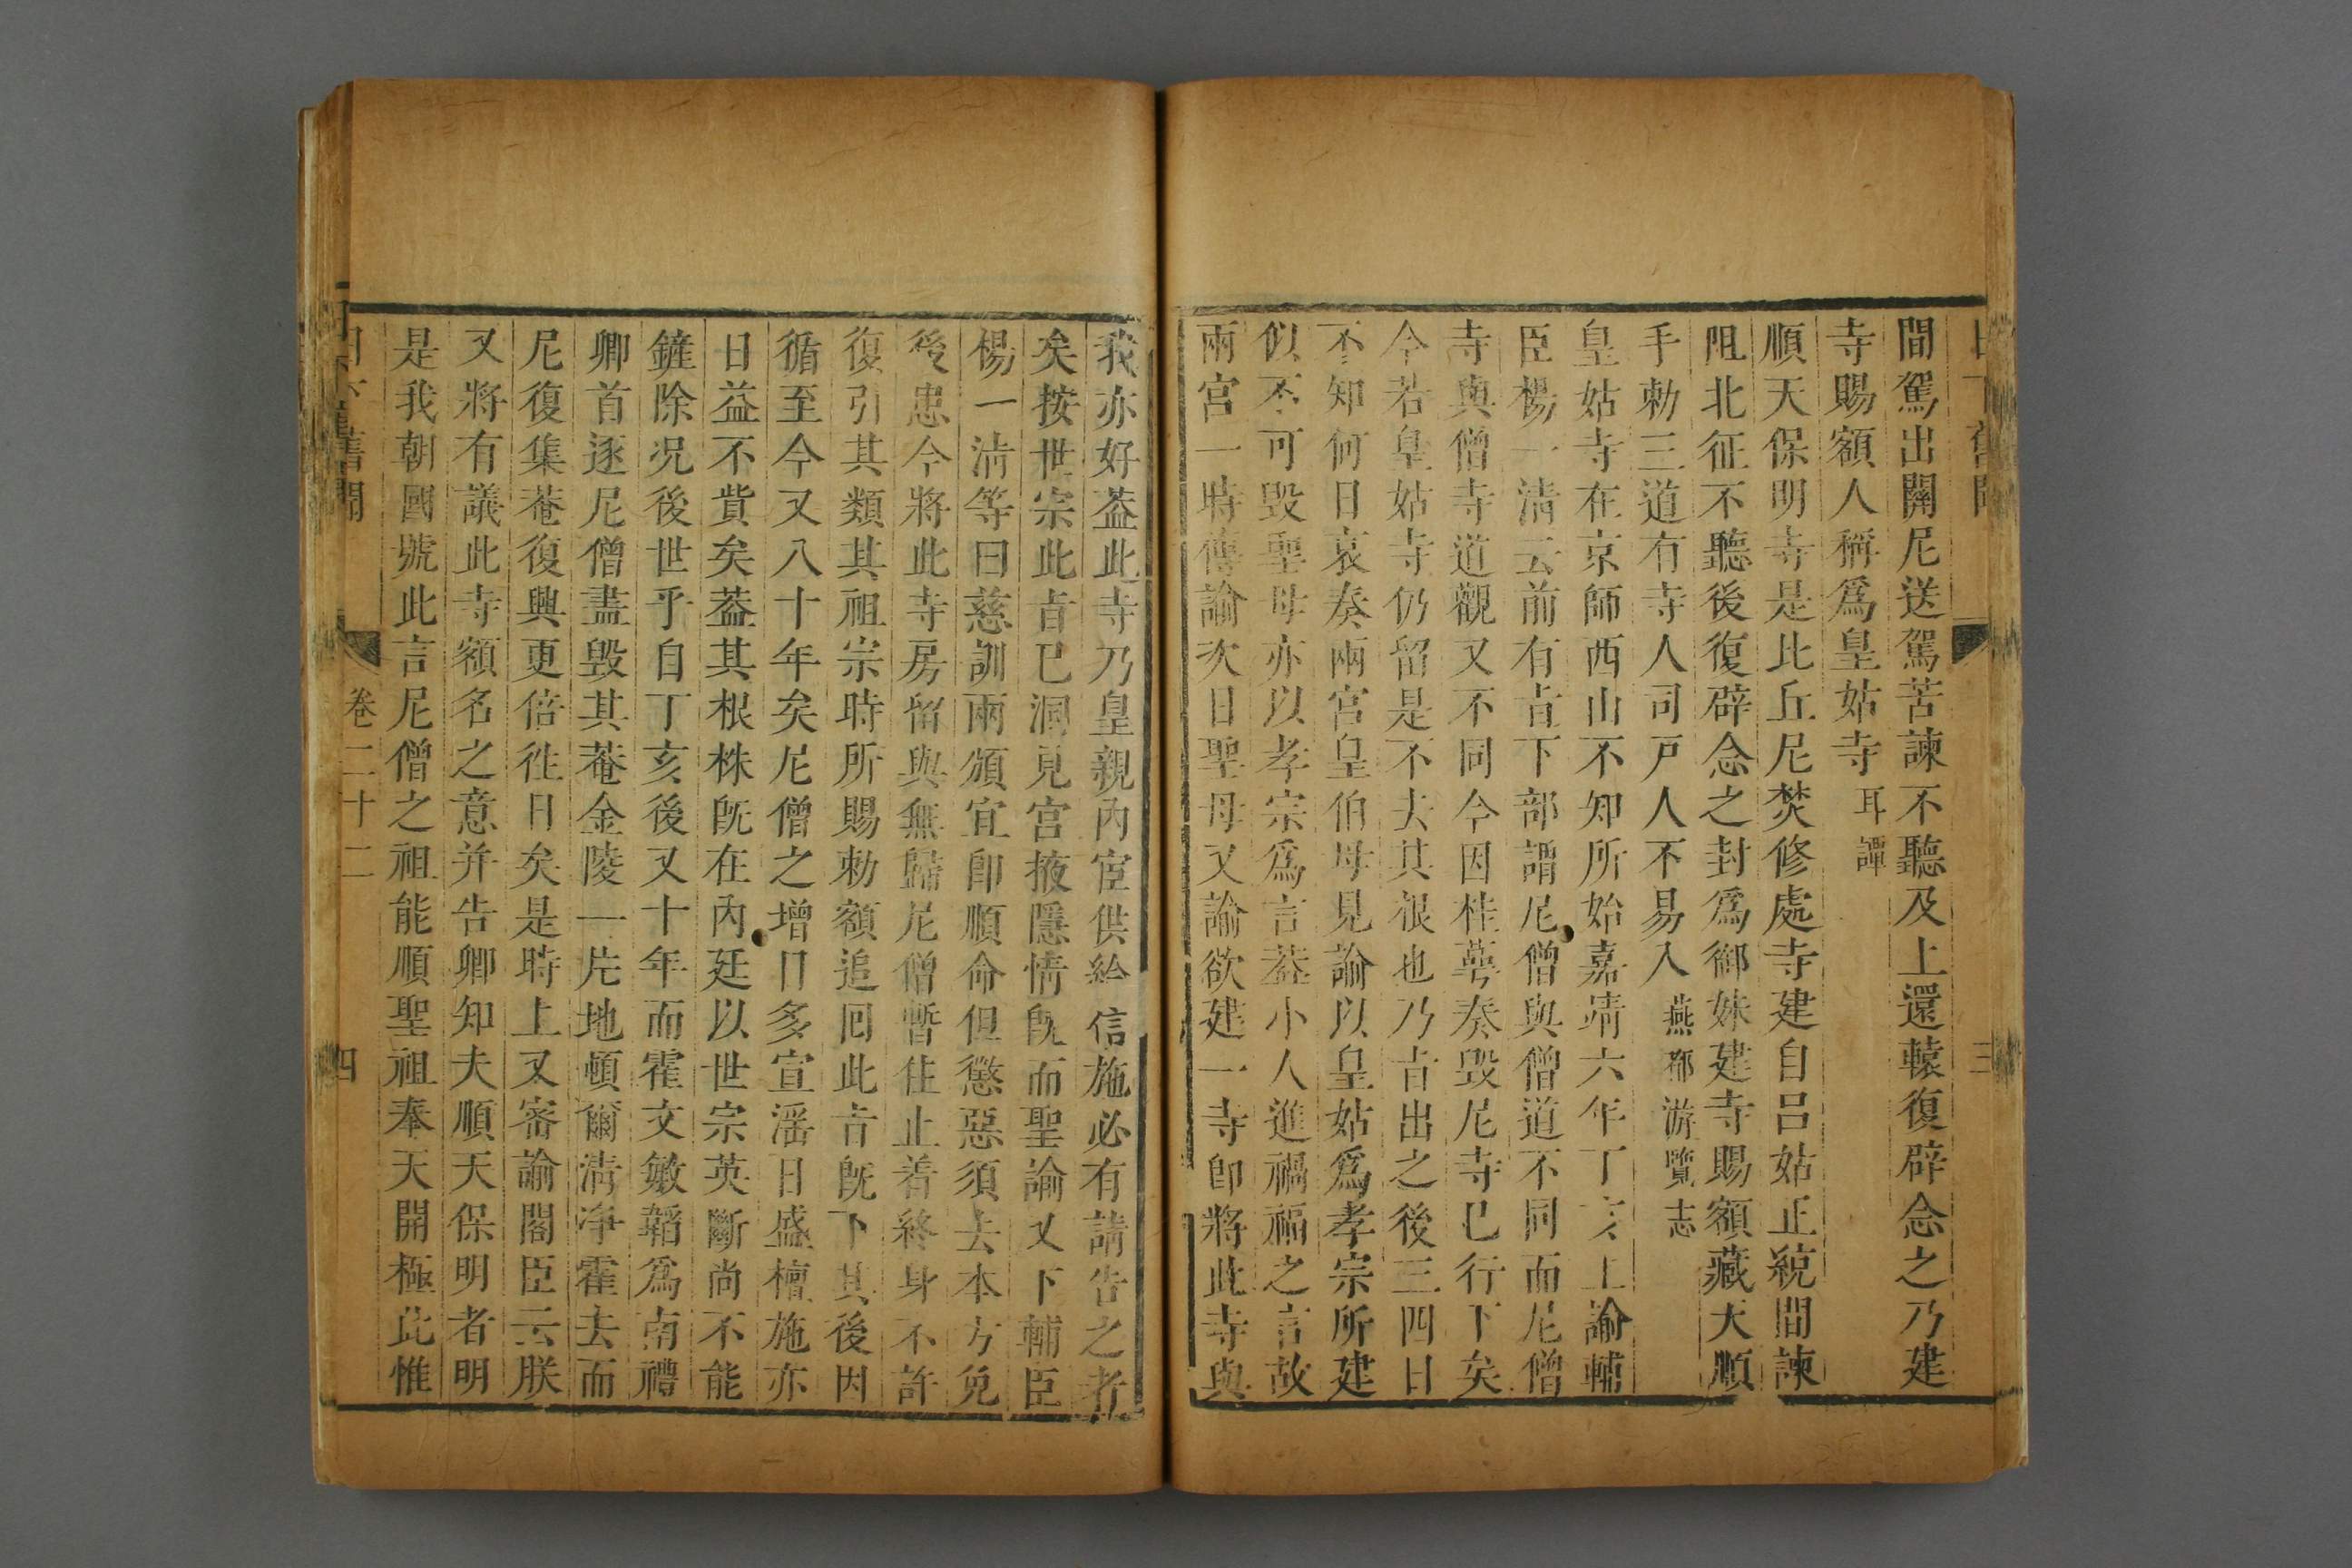 間駕出關尼送駕苦諫不聽及上還轅復辟念之乃建
寺賜額人稱爲皇姑寺耳譚
順天保明寺是比丘尼焚修處寺建自呂姑正統間諫
阻北征不聽後復辟念之封爲御妹建寺賜額藏天順
手勅三道有寺人司戸人不易入燕都游覽志
皇姑寺在京師西山不知所始嘉靖六年丁亥上諭輔
臣楊一清云前有旨下部謂尼僧與僧道不同而尼僧
寺與僧寺道觀又不同今因桂萼奏毀尼寺已行下矣
今若皇姑寺仍留是不去其根也乃旨出之後三四日
不知何日哀奏兩宮皇伯母見諭以皇姑爲孝宗所建
似不可毀聖母亦以孝宗爲言葢小人進禍福之言故
兩宮一時傳諭次日聖母又諭欲建一寺卽將此寺與
我亦好葢此寺乃皇親內宦供給信施必有請告之者
矣按世宗此旨已洞見宮掖隱情旣而聖諭又下輔臣
楊一清等曰慈訓兩頒宜卽順命但懲惡須去本方免
後患今將此寺房留與無歸尼僧暫住止着終身不許
復引其類其祖宗時所賜勅額追囘此旨旣下其後因
循至今又八十年矣尼僧之增日多宣滛日盛檀施亦
日益不貲矣葢其根株旣在內廷以世宗英斷尚不能
鏟除況後世乎自丁亥後又十年而霍文敏韜爲南禮
卿首逐尼僧盡毀其菴金陵一片地頓爾清淨霍去而
尼復集菴復興更倍徃日矣是時上又密諭閣臣云朕
又將有議此寺額名之意并告卿知夫順天保明者明
是我朝國號此言尼僧之祖能順聖祖奉天開極此惟
日下舊聞 卷二十二 四